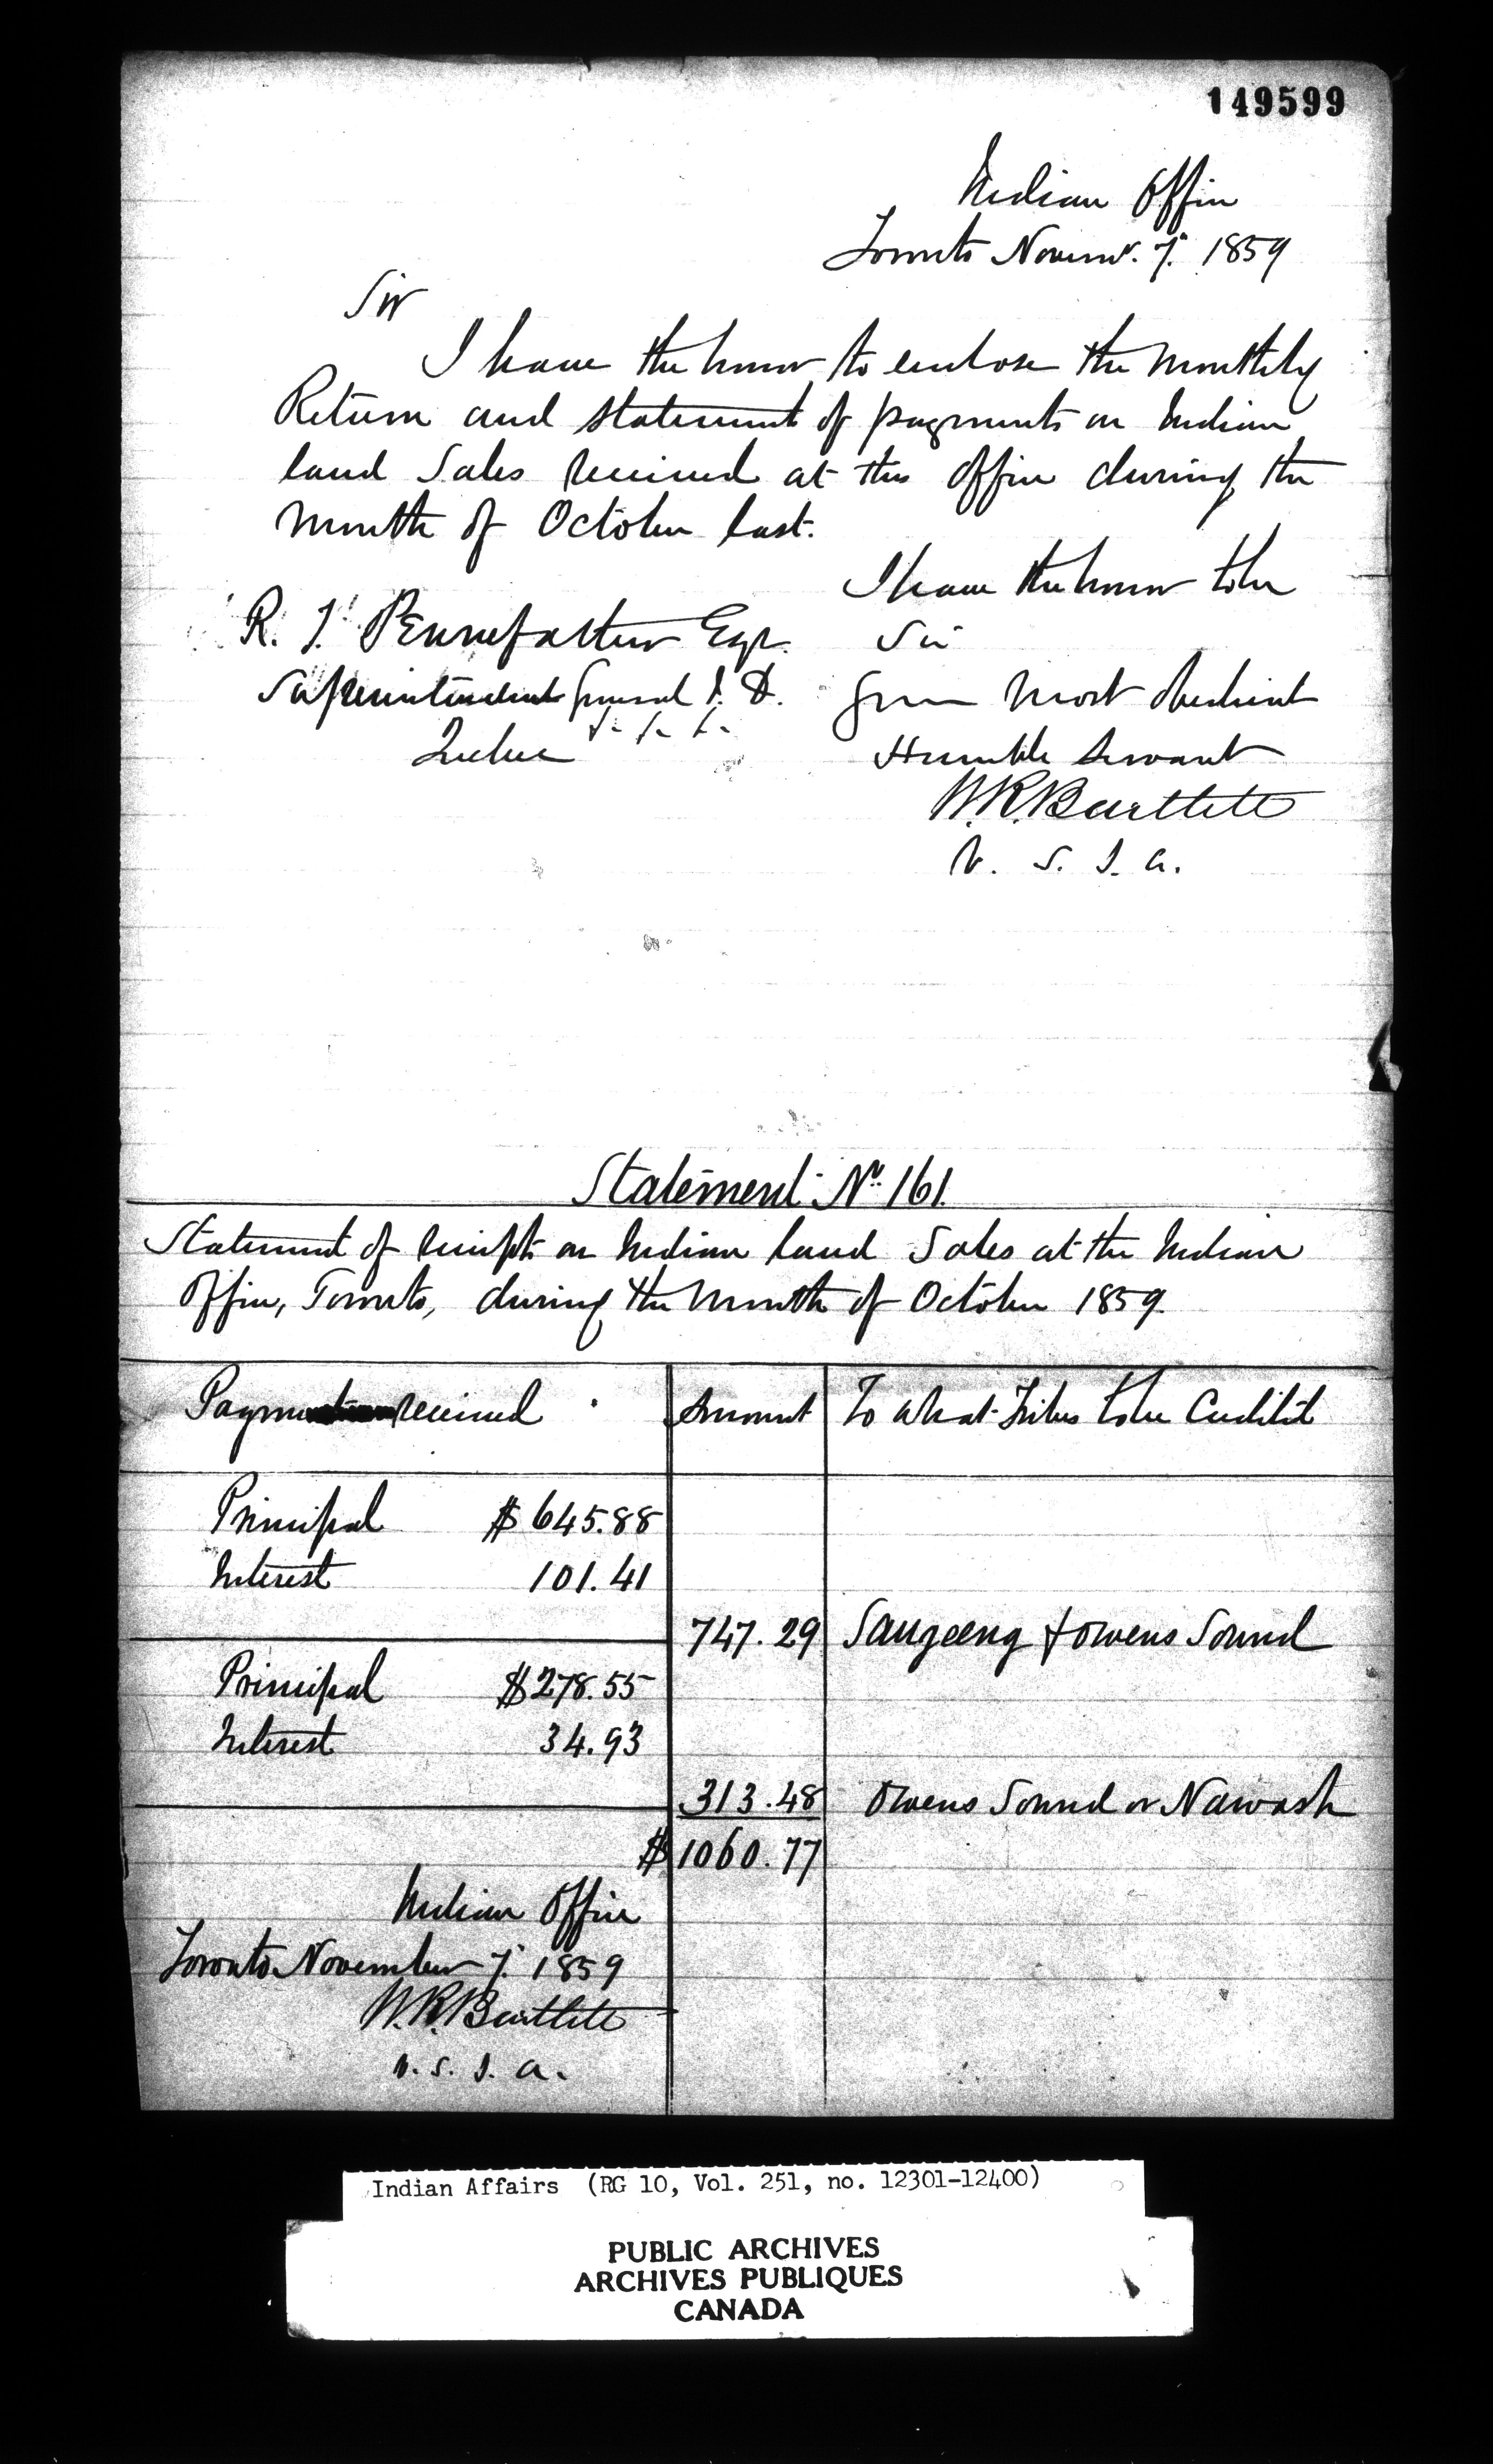 149599
Indian Office
Toronto Novemr. 7. 1859
Sir
I have the honor to enclose the Monthly
Return and Statement of payments on Indian
land Sales received at this Office during the
Month of October last.
I have the honor to be
Sir
Your Most Obedient
Humble Servant
W.R.Bartlett
V. S. I. A.
R. T. Pennefather Esqr.
Superintendent General I. A.
Quebec
Statement No. 161.
Statement of receipts on Indian land Sales at the Indian
Office, Toronto, during the Month of October 1859.
Payment received
Amount
To what Tribes to be Credited
Principal $645.88
Interest 101.41
747.29 Saugeeng & Owens Sound
Principal $278.55
Interest 34.93
313.48 Owens Sound or Nawash
$1060.77
Indian Office
Toronto November 7. 1859
W.R.Bartlett
V. S. I. A.
Indian Affairs (RG 10, Vol. 251, no. 12301-12400)
PUBLIC ARCHIVES
ARCHIVES PUBLIQUES
CANADA